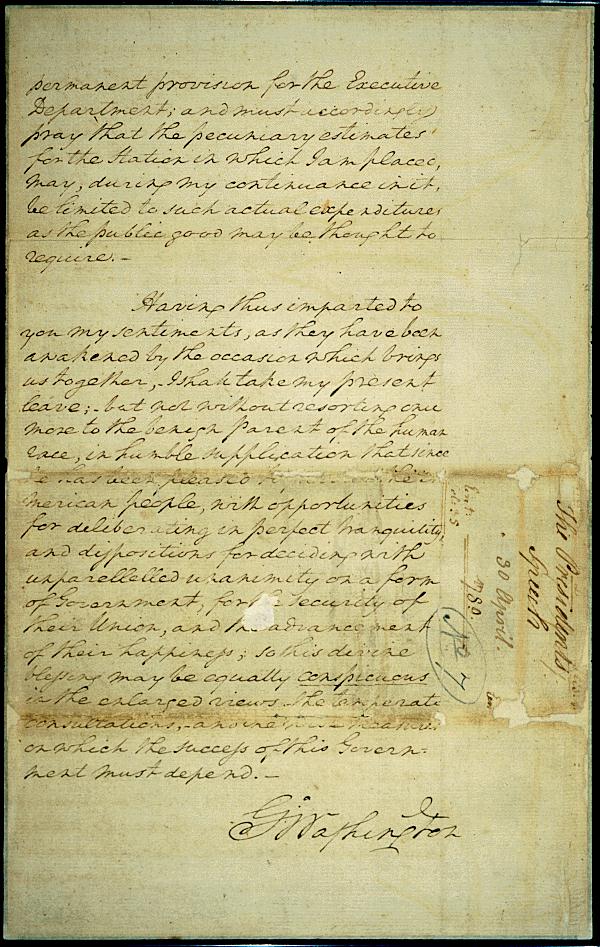 permanent provision for the Executive
Department; and must accordingly
pray that the pecuniary estimates
for the Station in which I am placed,
may, during my continuance in it,
be limited to such actual expenditures
as the public good may be thought to
require. -
Having thus imparted to
you my sentiments, as they have been
awakened by the occasion which brings
us together, - I shall take my present
leave; - but not without resorting once
more to the benign Parent of the human
race, in humble supplication that since
he has been pleased to the
merican people, with opportunities
for deliberating in perfect tranquility,
and dispositions for deciding with
unparellelled unanimity on a form
of Government, for the Security of
their Union, and the advancement
of their happiness; so this divine
blessing may be equally conspicuous
in the enlarged views - the temperate
consultations, - and the
on which the success of this Govern-
ment must depend. -
G. Washington
The Presidents
Speech
30 April.
1789.
No 7